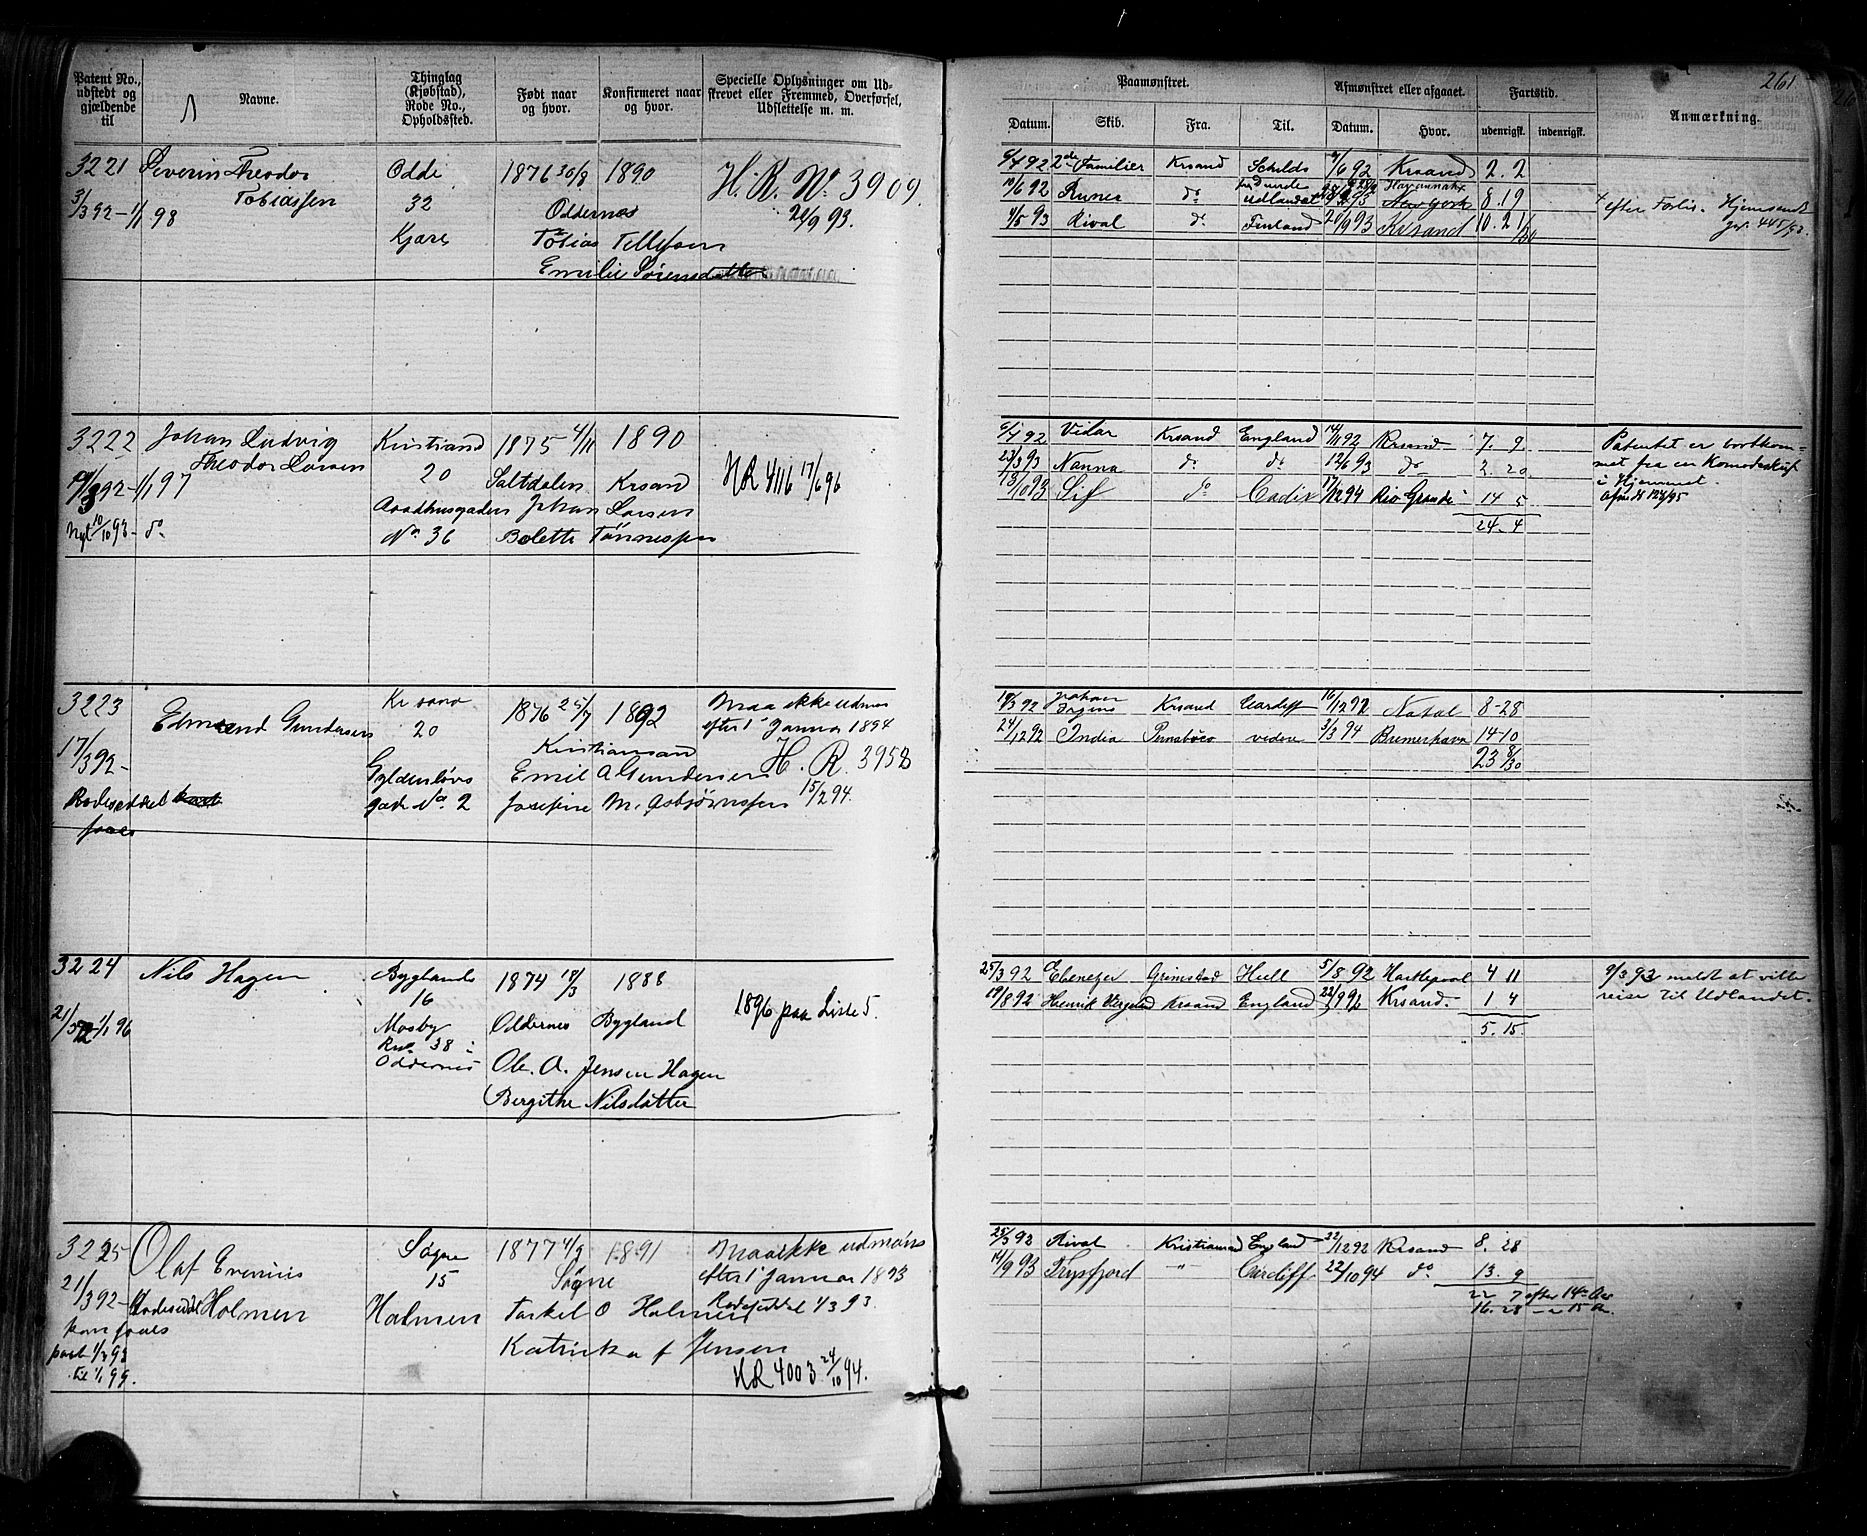 261
Patent No., udstedt og gjældende til
Navne.
Thinglag (Kjøbstad), Rode No., Opholdssted.
Født naar og hvor.
Konfirmeret naar og hvor.
Specielle Oplysninger om Udskrevet eller Fremmed, Overførsel, Udslettelse m. m.
Paamønstret.
Afmønstret eller afgaaet.
Fartstid.
Anmærkning.
Datum.
Skib.
Fra.
Til.
Datum.
Hvor.
udenrigsk.
indenrigsk.
3221
3/3 92 - 1/1 98
Severin Theodor
Tobiassen
Odde
32
Kjære
1876 30/8 1890
Oddernes
Tobias Tellefsen
Emilie Sørensdatter
H. R. No 3909.
21/9 93.
6/4 92 2de Familier Krsand 6/92 Krsand 2. 2
10/6 92 Runer do Udlandet New york 8. 19
4/5 93 Rival do Finland 20/9 93 Krsand 10. 21/30
efter Forlis. Hjemsendt
3222
3 92 - 1/1 97
Nyt 10/10 93 - do
Johan Ludvig
Theodor Larsen
Kristiand
20
Raadhusgaden
No 36
1875 4/11 1890
Saltdalen Krsand
Johan Larsen
Bolette Tønnessen
HR 4116 17/6 96
6/4 92 Vidar Krsand England 14/11 92 Krsand 7. 9.
23/3 93 Nanna do do 12/6 93 do 2. 20
13/10 93 Sif do Cadix 17/12 94 Rio Grande 14 5
24. 4
Patentet er bortkommet
fra en Komodeskuf
i Hjemmet.
3223
17/3 92 -
Rodeseddel
faaes
Edmund Gundersen
Krsand
20
Gyldenløvs
gade No. 2
1876 25/7 1892
Kristiansand
Emil A Gundersen
Josefine M. Asbjørnsen
Maa ikke udmøns
efter 1 Januar 1894
H. R. 3958
15/2 94.
19/3 92 Johan Irgens Krsand Cardiff 16/12 92 Natal 8-28
24/12 92 India videre 3/3 94 Bremerhavn 14 10
23 8/30
3224
21/3 92 1/1 96
Nils Hagen
Byglands
16
Mosby
38 i
Oddernes
1874 18/3 1888
Oddernes Bygland
Ole. A. Jensen Hagen
Bergithe Nilsdatter
1896 paa Liste 5.
25/3 92 Ebenezer Grimstad Hull 5/8 92 Hartlepool 4 11
19/8 92 Henrik Wergeland Krsand England 22/9 92 Krsand. 1 4
5. 15
9/3 93 meldt at ville
reise til Udlandet.
3225
21/3 92 -
Rodeseddel
kan faaes
pact 1/3 93
til 1/1 99.
Olaf Evenius
Holmen
Søgne
15
Holmen
1877 4/9 1891
Søgne
Tarkel O Holmen
Katrinka f Jensen
Maa ikke udmøns
efter 1 Januar 1893
Rodeseddel 1/3 93.
HR 4003 24/10 94.
25/3 92 Rival Kristiansand England 22/12 92 Krsand 8. 28
14/9 93 Frysfjord " Cardiff 22/10 94 do 13. 9
22 7 efter 14 Aar
16. 28 - " 15 Aa.